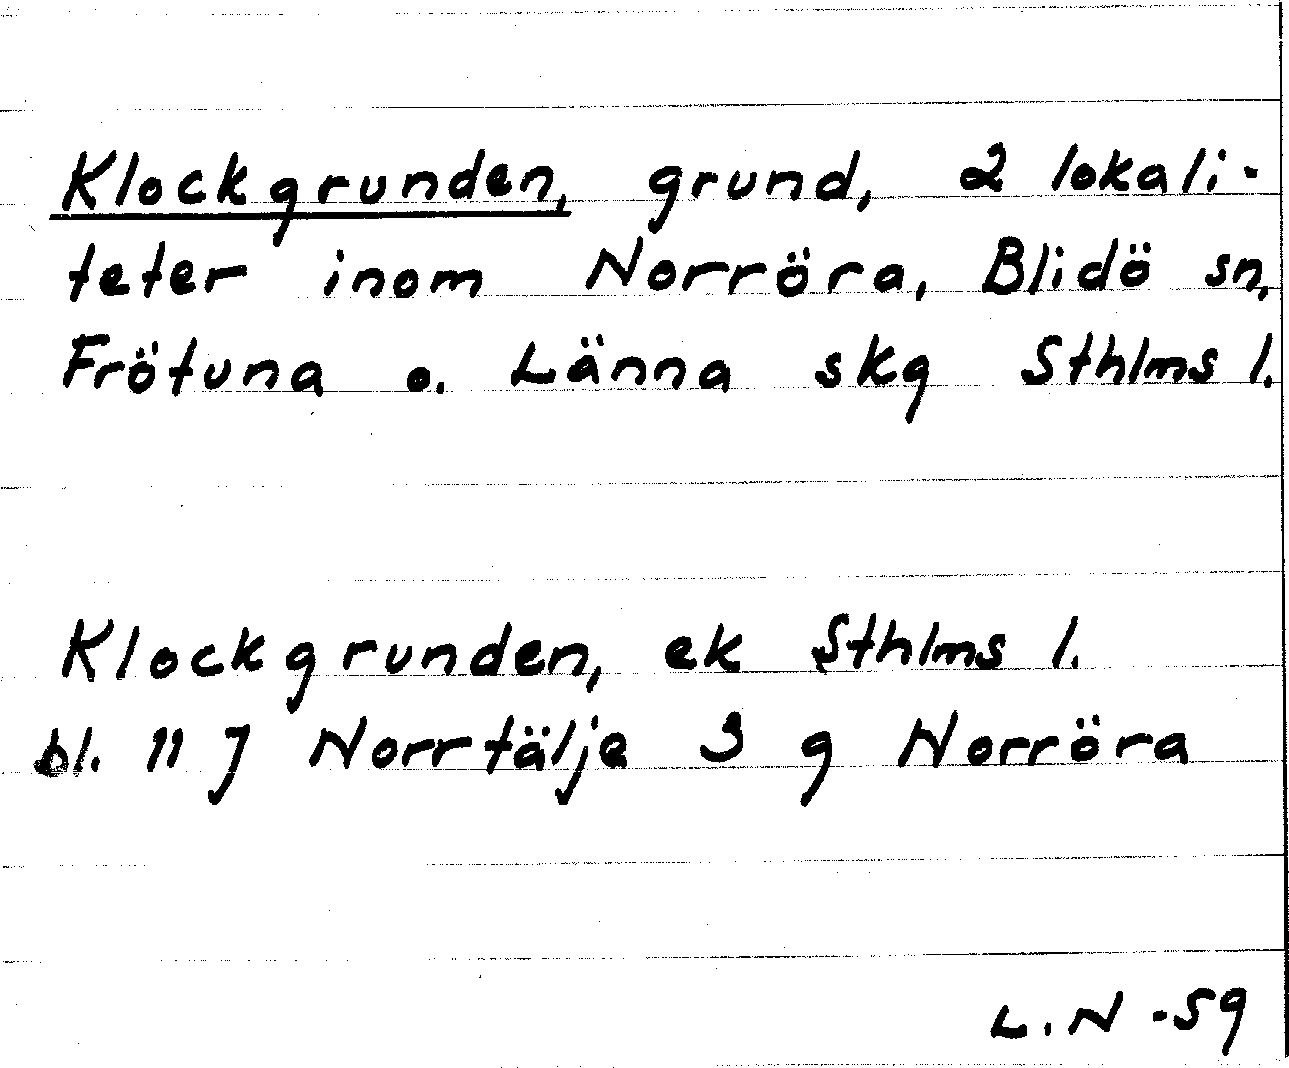 Klockgrunden, grund, 2 lokali-
teter inom Norröra, Blidö sn,
Frötuna o. Länna skg Sthlms l.
Klockgrunden, ek Sthlms l.
bl. 11 J Norrtälje 3 g Norröra
L.N -59